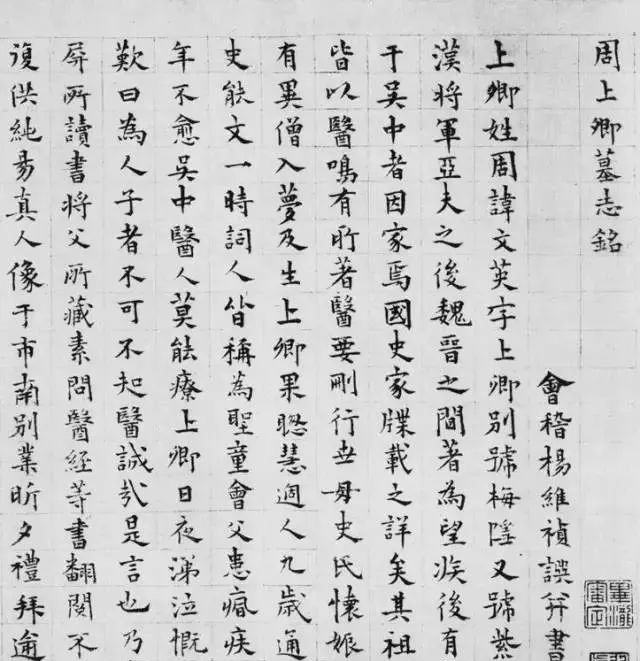 周上卿墓志銘
會稽楊維禎譔并書
上卿姓周諱文英字上卿別號梅隱又號紫
漢將軍亞夫之後魏晉之間著為望族後有
于吳中者因家焉國史家牒載之詳矣其祖
皆以醫鳴有所著醫要刪行世母史氏懷娠
有異僧入夢及生上卿果聰慧過人九歲通
史能文一時詞人皆稱為聖童會父患瘡疾
年不愈吳中醫人莫能療上卿日夜涕泣慨
歎曰為人子者不可不知醫誠哉是言也乃
屏所讀書將父所藏素問醫經等書翻閱不
復供純昜真人像于市南別業昕夕禮拜逾